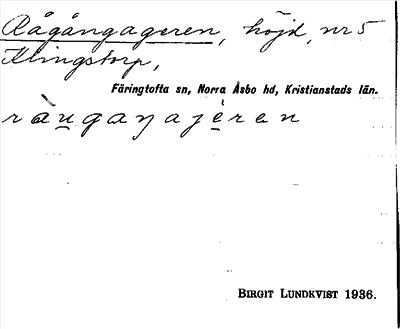 Rågångageren, höjd, nr 5
Klingstorp,
Färingtofta sn, Norra Åsbo hd, Kristianstads län.
ràu̲gaŋajè̲ren
BIRGIT LUNDKVIST 1936.